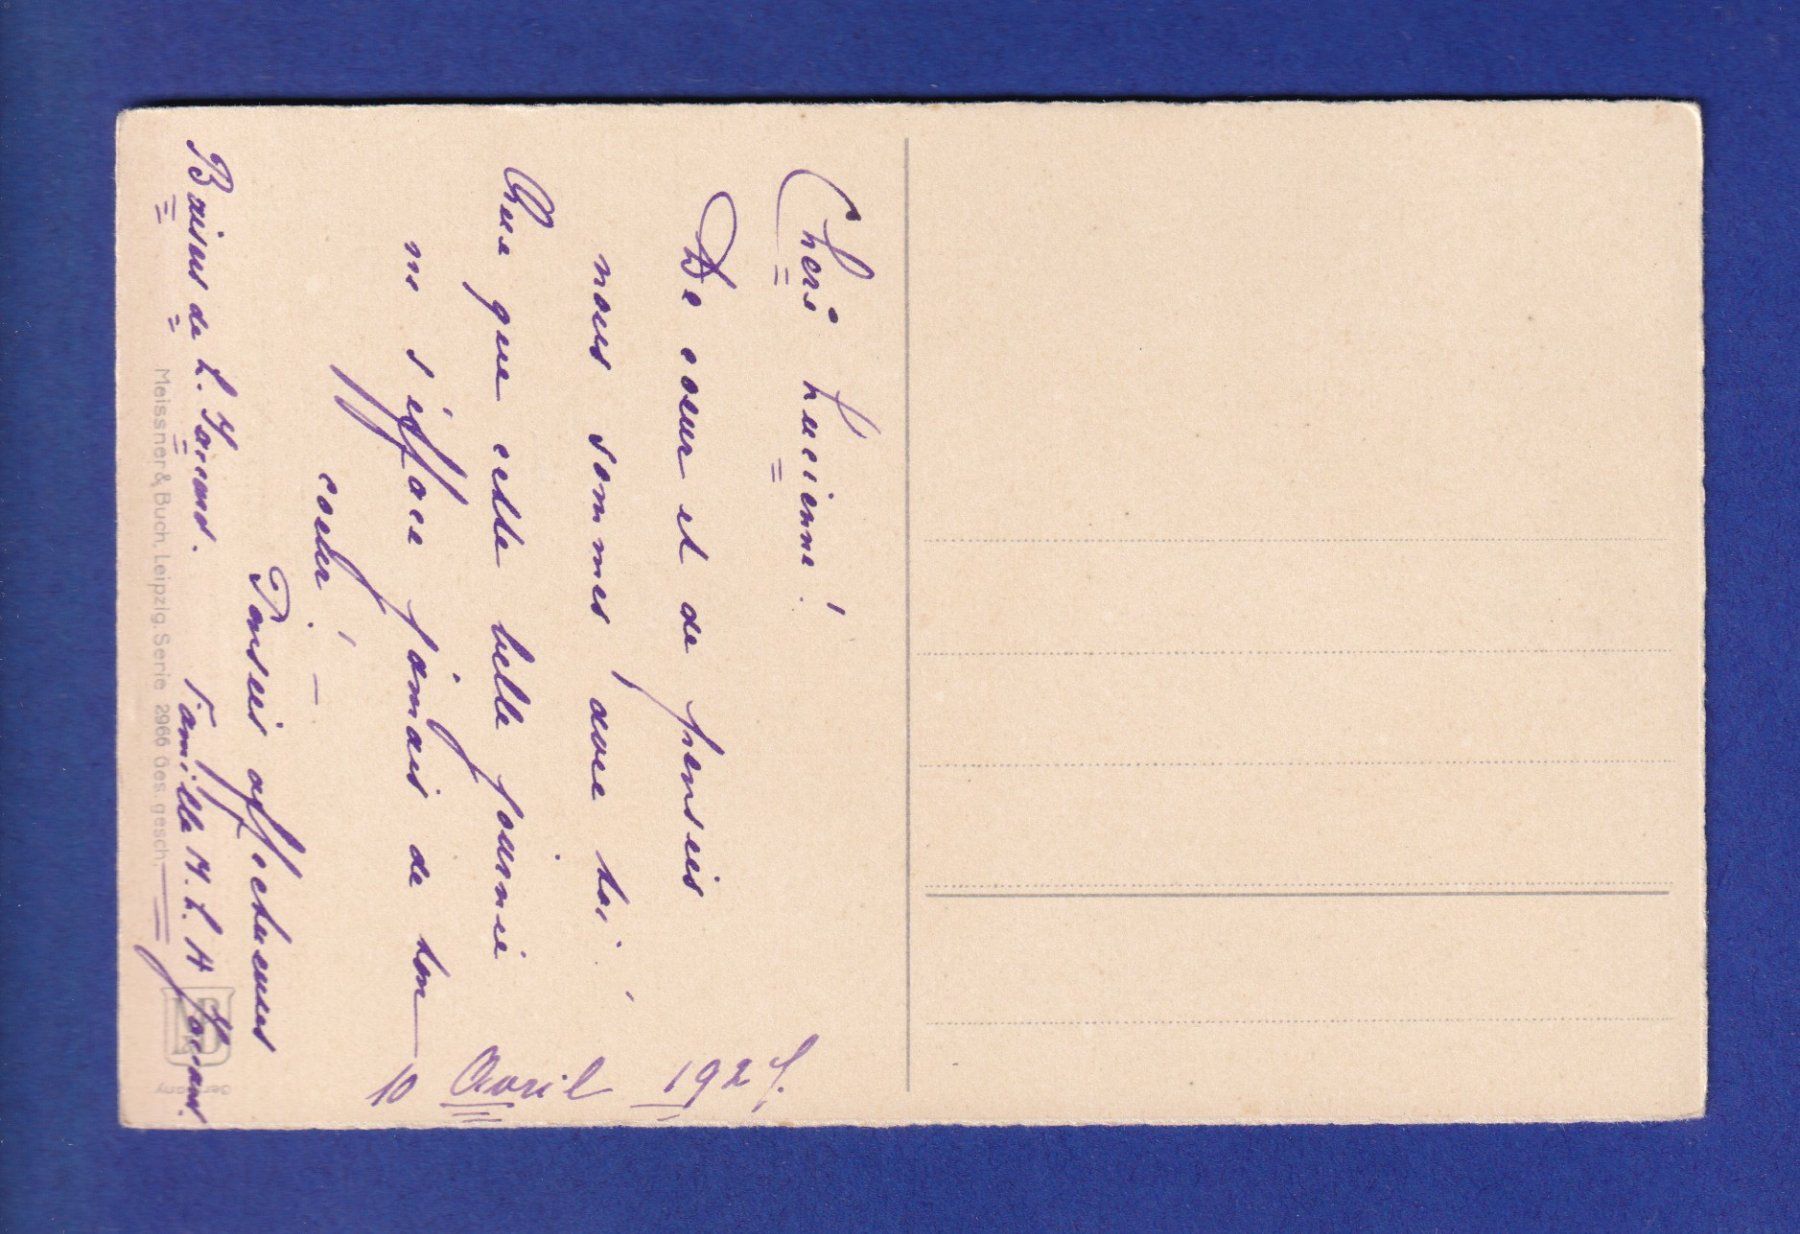 Cheri Lucienne!
De coeur et de pensées
nous sommes avec toi!
Que que cette belle journée
ne s'efface jamais de ton
coeur! —
Pensées affectueuses
Famille M. L. H
Baisers de L.
10 Avril 1927.
Meissner & Buch, Leipzig. Serie 2966 Ges. gesch.
Germany